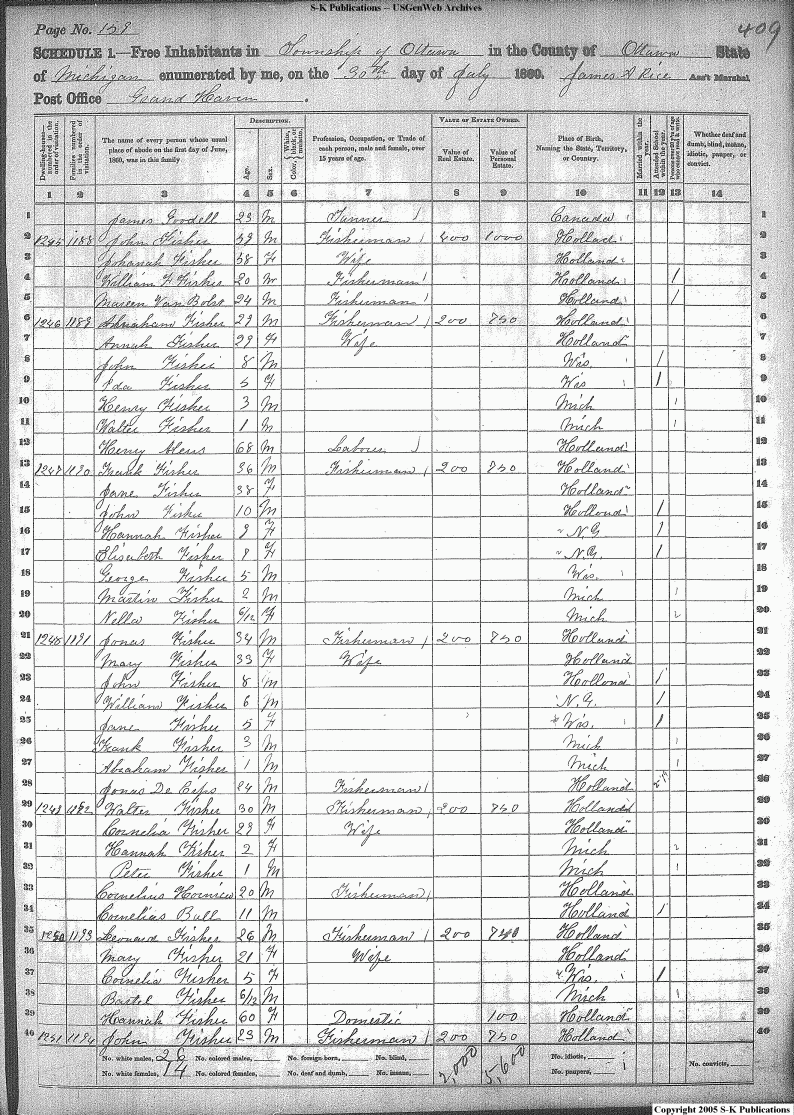 S-K Publications – USGenWeb Archives
Page No. 159
409
SCHEDULE 1.—Free Inhabitants in Township of Ottawa in the County of Ottawa State
of Michigan enumerated by me, on the 30th day of July 1860. James A Rice Ass't Marshal
Post Office Grand Haven .
Dwelling-houses— numbered in the order of visitation.
Families numbered in the order of visitation.
The name of every person whose usual place of abode on the first day of June, 1860, was in this family.
DESCRIPTION.
Age.
Sex.
Color, White, black, or mulatto.
Profession, Occupation, or Trade of each person, male and female, over 15 years of age.
VALUE OF ESTATE OWNED.
Value of Real Estate.
Value of Personal Estate.
Place of Birth, Naming the State, Territory, or Country.
Married within the year.
Attended School within the year.
Persons over 20 y'rs of age who cannot read & write.
Whether deaf and dumb, blind, insane, idiotic, pauper, or convict.
1 2 3 4 5 6 7 8 9 10 11 12 13 14
1 James Goodell 23 M Tanner Canada 1
2 1245 1188 John Fisher 39 M Fisherman 400 1000 Holland 2
3 Johanah Fisher 38 F Wife Holland 3
4 William F Fisher 20 M Fisherman Holland / 4
5 Van 24 M Fisherman Holland / 5
6 1246 1189 Abraham Fisher 29 M Fisherman 200 750 Holland 6
7 Annah Fisher 29 F Wife Holland 7
8 John Fisher 8 M Wis. / 8
9 Ida Fisher 5 F Wis / 9
10 Henry Fisher 3 M Mich 1 10
11 Walter Fisher 1 M Mich 1 11
12 Henry 68 M Laborer Holland 12
13 1247 1190 Frank Fisher 36 M Fisherman 200 750 Holland 13
14 Jane Fisher 38 F Holland 14
15 John Fisher 10 M Holland / 15
16 Hannah Fisher 9 F N.Y. / 16
17 Elisebeth Fisher 8 F N.Y. / 17
18 George Fisher 5 M Wis. 18
19 Martin Fisher 2 M Mich 1 19
20 Nella Fisher 6/12 F Mich 2 20
21 1248 1191 Jonas Fisher 34 M Fisherman 200 750 Holland 21
22 Mary Fisher 33 F Wife Holland 22
23 John Fisher 8 M Holland / 23
24 William Fisher 6 M N.Y. / 24
25 Jane Fisher 5 F Wis. / 25
26 Frank Fisher 3 M Mich 1 26
27 Abraham Fisher 1 M Mich 1 27
28 Jonas De 24 M Fisherman Holland 28
29 1249 1192 Walter Fisher 30 M Fisherman 200 750 Holland 29
30 Cornelia Fisher 29 F Wife Holland 30
31 Hannah Fisher 2 F Mich 2 31
32 Peter Fisher 1 M Mich 1 32
33 Cornelius 20 M Fisherman Holland 33
34 Cornelius Ball 11 M Holland / 34
35 1250 1193 Leonard Fisher 26 M Fisherman 200 Holland 35
36 Mary Fisher 21 F Wife Holland 36
37 Cornelia Fisher 5 F Wis. / 37
38 Bastel Fisher 6/12 M Mich 1 38
39 Hannah Fisher 60 F Domestic 100 Holland 39
40 1251 1194 John Fisher 23 M Fisherman 200 750 Holland 40
No. white males, 26 No. colored males, No. foreign born, No. blind, 2,000 5,600 No. idiotic, No. convicts,
No. white females, 14 No. colored females, No. deaf and dumb, No. insane, No. paupers,
Copyright 2005 S-K Publications